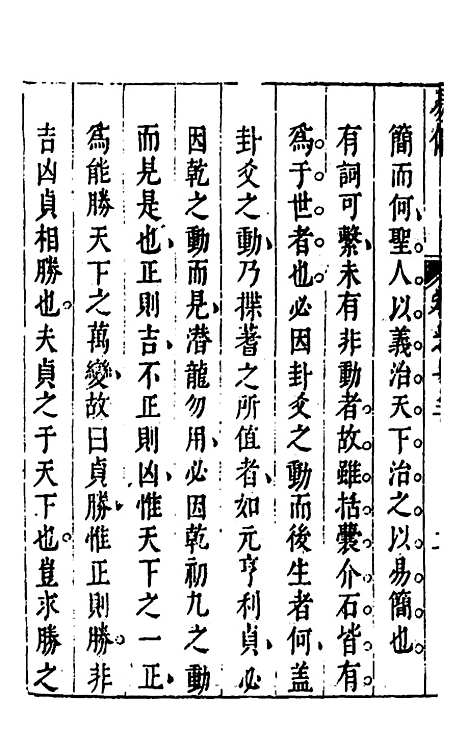 簡而何聖人以義治天下治之以易簡也
有詞可繫未有非動者故雖括囊介石皆有
為于世者也必因卦爻之動而後生者何蓋
卦爻之動乃揲蓍之所值者如元亨利貞必
因乾之動而見潛龍勿用必因乾初九之動
而見是也正則吉不正則凶惟天下之一正
為能勝天下之萬變故曰貞勝惟正則勝非
吉凶貞相勝也夫貞之于天下也豈求勝之